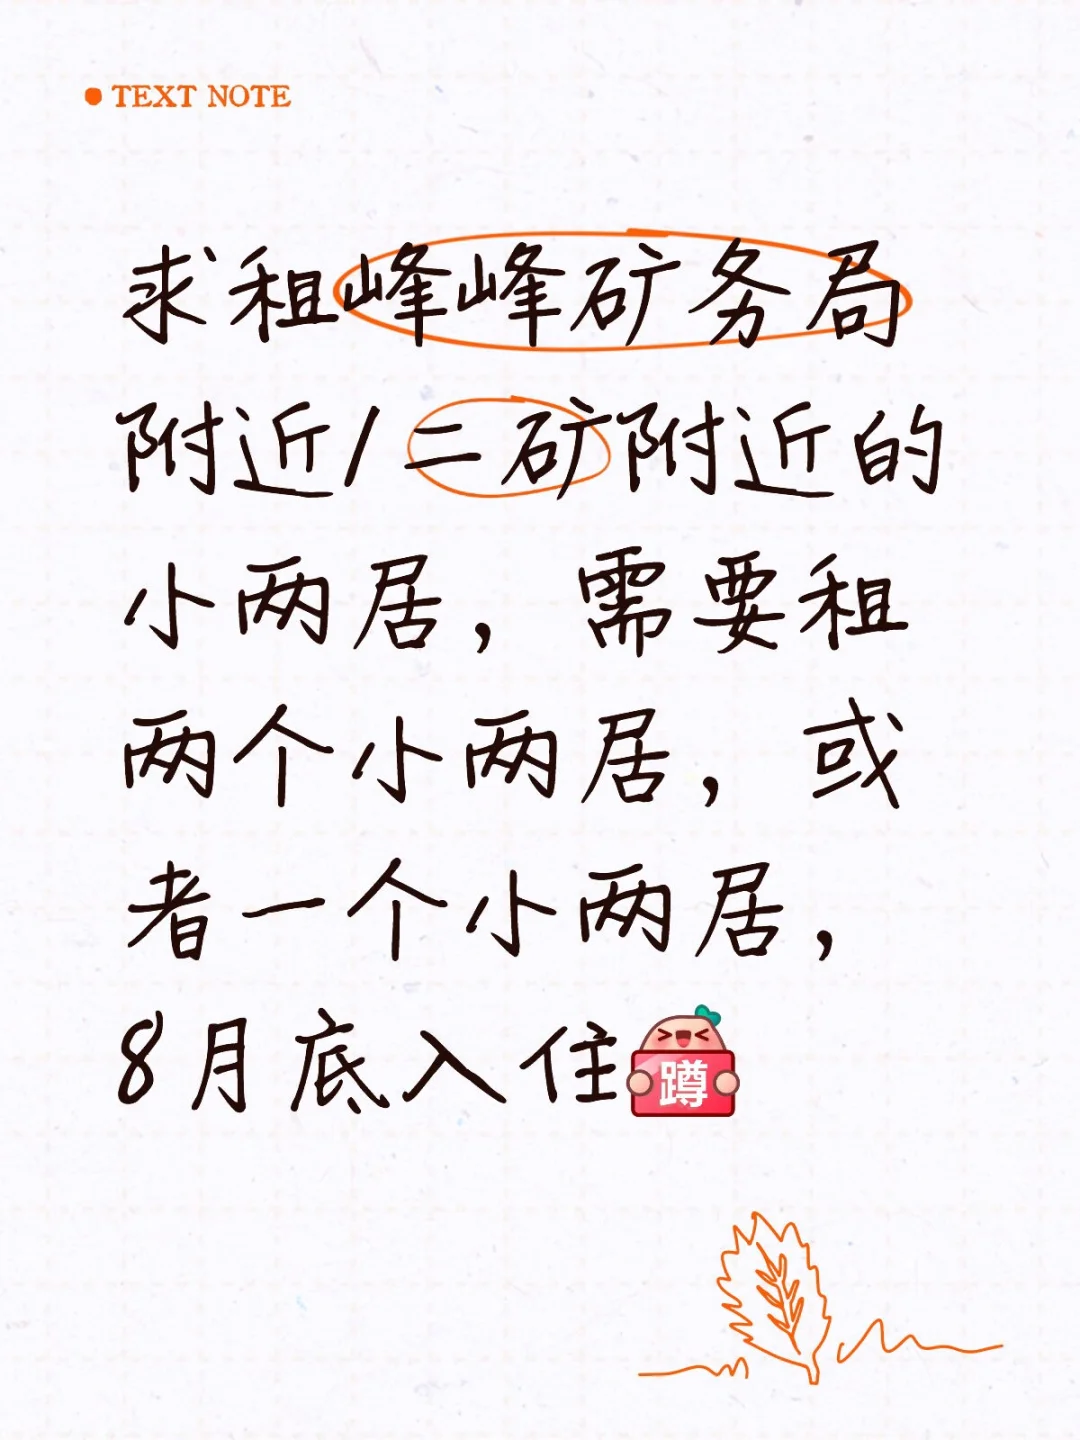 TEXT NOTE
求租峰峰矿务局
附近/二矿附近的
小两居，需要租
两个小两居，或
者一个小两居，
8月底入住蹲